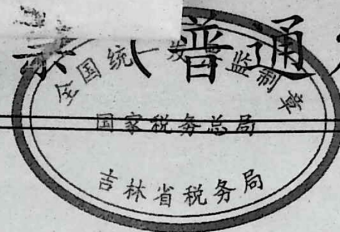 票（普通
全国统一发 监制章
国家税务总局
吉林省税务局